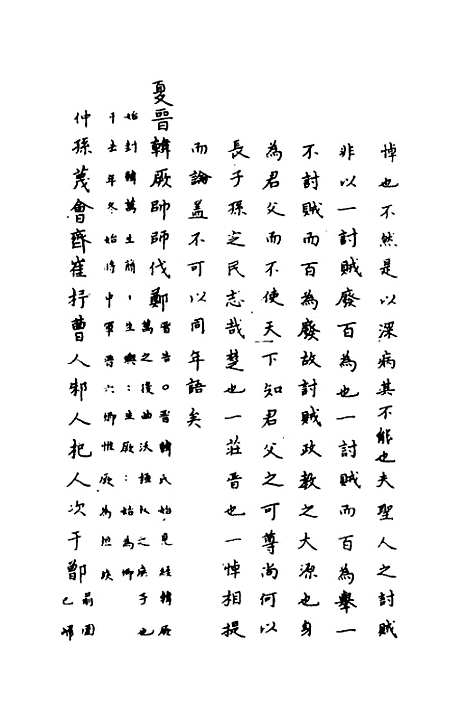 悼也不然是以深病其不能也夫聖人之討賊
非以一討賊廢百為也一討賊而百為舉一
不討賊而百為廢故討賊政教之大源也身
為君父而不使天下知君父之可尊尚何以
長子孫定民志哉楚也一莊晉也一悼相提
而論蓋不可以同年語矣
夏晉韓厥帥師伐鄭
晉告○晉韓氏始見經韓厥
萬之後曲沃桓叔之庶子也
始封韓萬生
生輿生厥始為卿
年冬始將中軍晉六卿惟厥為
仲孫蔑會齊崔杼曹人邾人杞人次于鄫
前國
已歸